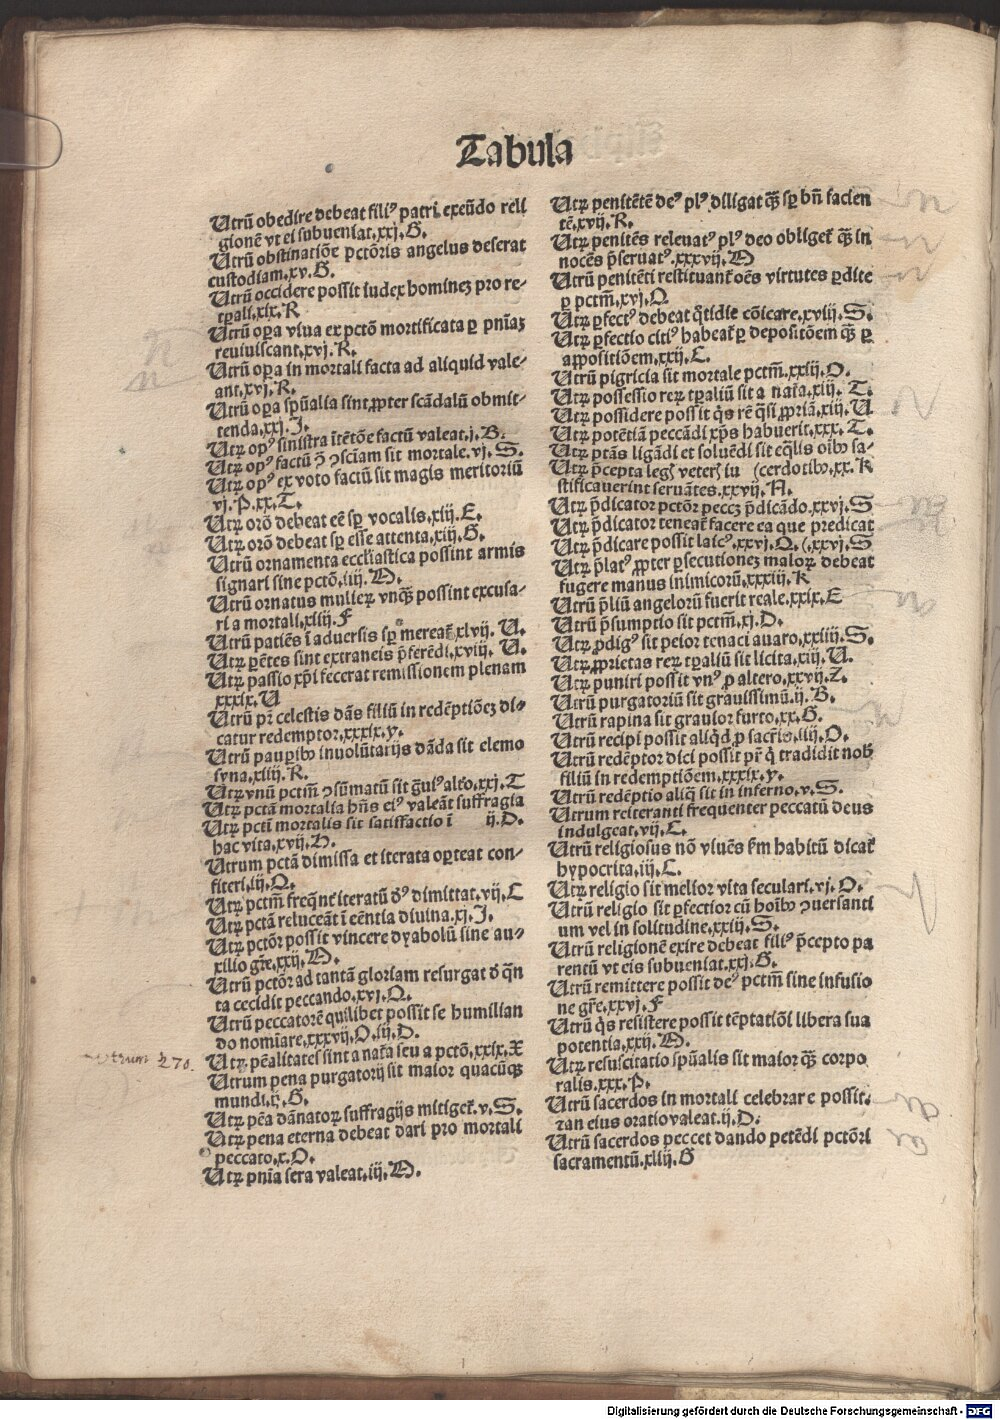 Tabula
Utrū obedire debeat filiꝰ patri exeūdo reli
gionē vt ei subueniat.xxj.G.
Utrū obstinatiōe pctōris angelus deserat
custodiam.xv.G.
Utrū occidere possit iudex hominez pro re-
tꝑali.xix.R
Utrū oꝑa viua ex pctō mortificata ꝑ pnīaz
reuiuiscant.xvj.R.
Utrū oꝑa in mortali facta ad aliquid vale-
ant.xvj.R.
Utrū oꝑa spūalia sint ꝓpter scādalū obmit-
tenda.xxj.J.
Utꝝ opꝰ sinistra ītētōe factū valeat.j.B.
Utꝝ opꝰ factū ꝯ ꝯsciam sit mortale.vj.S.
Utꝝ opꝰ ex voto factū sit magis meritoriū
vj.P.xx.T.
Utꝝ orō debeat eē sꝑ vocalis.xiij.E.
Utꝝ orō debeat sꝑ esse attenta.xiij.G.
Utrū ornamenta eccliastica possint armis
signari sine pctō.iiij.M.
Utrū ornatus mulieꝝ vnqꝫ possint excusa-
ri a mortali.xliij.F
Utrū patiēs ī aduersis sꝑ mereat̄.xlvij.U.
Utꝝ ꝑētes sint extraneis p̄ferēdi.xviij.U.
Utꝝ passio xp̄i fecerat remissionem plenam
xxxix.U
Utrū pr̄ celestis dās filiū in redēptiōez di-
catur redemptor.xxxix.y.
Utrū pauꝑibꝫ inuolūtarijs dāda sit elemo
syna.xliij.R.
Utꝝ vnū pctm̄ ꝯsūmatū sit ḡuiꝰ alto.xxj.T
Utꝝ pctā mortalia hn̄s eiꝰ valeāt suffragia
Utꝝ pctī mortalis sit satisfactio ī ij.D.
hac vita.xvij.H.
Utrum pctā dimissa et iterata oꝑteat con-
fiteri.iij.Q.
Utꝝ pctm̄ freq̄nt̄ iteratū dꝰ dimittat.vij.C
Utꝝ pctā reluceāt ī eēntia diuina.xj.J.
Utꝝ pctōr possit vincere dyabolū sine au-
xilio gr̄e.xxij.M.
Utrū pctōr ad tantā gloriam resurgat d̄ q̄n
ta cecidit peccando.xvj.Q.
Utrū peccatorē quilibet possit se humilian
do nomiare.xxxvij.O.iij.D.
Utꝝ pēalitates sint a nat̄a seu a pctō.xxix.X
Utrum pena purgatorij sit maior quacūqꝫ
mundi.ij.G.
Utꝝ pēa dānatoꝝ suffragijs mitiget̄.v.S.
Utꝝ pena eterna debeat dari pro mortali
peccato.x.O.
Utꝝ pnīa sera valeat.iij.M.
Utrum 270.
Utꝝ penitētē deꝰ plꝰ diligat qꝫ sꝑ bn̄ facien
tē.xvij.R.
Utꝝ penitēs releuatꝰ plꝰ deo obliget̄ qꝫ in
nocēs p̄seruatꝰ.xxxvij.M
Utrū penitēti restituant̄ oēs virtutes ꝑdite
ꝑ pctm̄.xvj.Q.
Utꝝ ꝑfectꝰ debeat q̄tidie cōicare.xviij.S.
Utꝝ ꝑfectio citiꝰ habeat̄ ꝑ depositōem qꝫ ꝑ
appositiōem.xxij.C.
Utrū pigricia sit mortale pctm̄.xxiij.O.
Utꝝ possessio reꝝ tꝑaliū sit a nat̄a.xiij.T.
Utꝝ possidere possit q̄s rē q̄si ꝓpriā.xiij.U
Utꝝ potētiā peccādi xp̄s habuerit.xxx.T.
Utꝝ ptās ligādi et soluēdi sit eq̄lis oībꝫ sa-
Utꝝ p̄cepta legꝫ veterꝫ iu (cerdotibꝫ.xx.K
stificauerint seruātes.xxvij.N.
Utꝝ p̄dicator pctōr peccꝫ p̄dicādo.xxvj.S
Utꝝ p̄dicator teneat̄ facere ea que predicat
Utꝝ p̄dicare possit laicꝰ.xxvj.Q. (.xxvj.S
Utꝝ p̄latꝰ ꝓpter ꝑsecutionez maloꝝ debeat
fugere manus inimicorū.xxxiij.K
Utrū p̄liū angelorū fuerit reale.xxix.E
Utrū p̄sumptio sit pctm̄.xj.D.
Utꝝ ꝓdigꝰ sit peior tenaci auaro.xxiiij.S.
Utꝝ ꝓprietas reꝝ tꝑaliū sit licita.xiij.U.
Utꝝ puniri possit vnꝰ ꝓ altero.xxvij.Z.
Utrū purgatoriū sit grauissimū.ij.B.
Utrū rapina sit grauior furto.xx.G.
Utrū recipi possit aliq̄d ꝓ sacr̄is.iiij.O.
Utrū redēptor dici possit pr̄ q̄ tradidit nob̄
filiū in redemptiōem.xxxix.y.
Utrū redēptio aliq̄ sit in inferno.v.S.
Utrum reiteranti frequenter peccatū deus
indulgeat.vij.C.
Utrū religiosus nō viuēs ẜm habitū dicat̄
hypocrita.iij.C.
Utꝝ religio sit melior vita seculari.vj.O.
Utrū religio sit ꝑfectior cū hoībꝫ ꝯuersanti
um vel in solitudine.xxiij.S.
Utrū religionē exire debeat filiꝰ p̄cepto pa
rentū vt eis subueniat.xxj.G.
Utrū remittere possit deꝰ pctm̄ sine infusio
ne gr̄e.xxvj.F
Utrū q̄s resistere possit tēptatiōi libera sua
potentia.xxij.M.
Utꝝ resuscitatio spūalis sit maior qꝫ corpo
ralis.xxx.P.
Utrū sacerdos in mortali celebrare possit.
ꝛan eius oratio valeat.ij.D.
Utrū sacerdos peccet dando petēdi pctōri
sacramentū.xliij.G
Digitalisierung gefördert durch die Deutsche Forschungsgemeinschaft - DFG